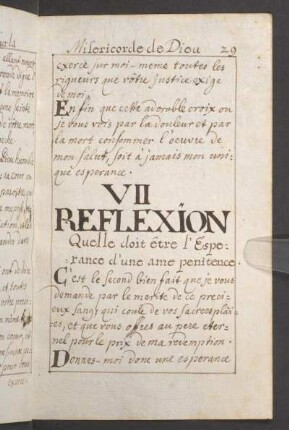 Misericorde de Dieu 29
exerce sur moi-meme toutes les
rigueurs que vôtre Justice exige
de moi.
Enfin que cette adorable croix ou
je vous vois par la douleur et par
la mort consommer l'oeuvre de
mon salut, soit à jamais mon uni-
que esperance.
VII
REFLEXION
Quelle doit être l'Espe-
rance d'une ame penitence.
C'est le second bien fait que je vous
demande par le merite de ce preci-
eux sang qui coule de vos sacrées plai-
es, et que vous offres au pere eter-
nel pour le prix de ma redemption.
Donnes-moi donc une esperance